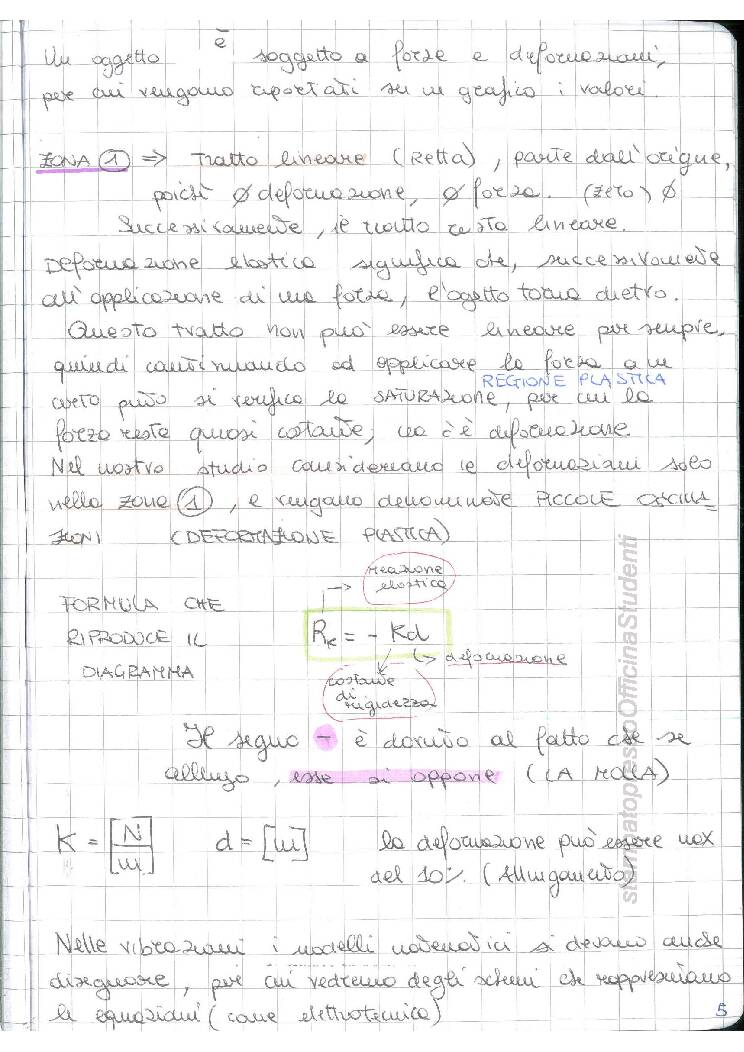 Un oggetto è soggetto a forze e deformazioni,
per cui vengono riportati su un grafico i valori.
ZONA 1 => Tratto lineare (Retta), parte dall'origine,
poichè Ø deformazione, Ø forza. (zero) Ø
Successivamente, il tratto resta lineare.
Deformazione elastica significa che, successivamente
all'applicazione di una forza, l'oggetto torna dietro.
Questo tratto non può essere lineare per sempre,
quindi continuando ad applicare la forza a un
REGIONE PLASTICA
certo punto si verifica la SATURAZIONE, per cui la
forza resta quasi costante, ma c'è deformazione.
Nel nostro studio consideriamo le deformazioni solo
nella zona 1, e vengono denominate PICCOLE OSCILLA
ZIONI (DEFORMAZIONE PLASTICA)
reazione
elastica
FORMULA CHE
RIPRODUCE IL
DIAGRAMMA
Rk = - Kd
deformazione
costante
di
rigidezza
Il segno - è dovuto al fatto che se
allungo, esse si oppone (LA MOLLA)
K = [N/m] d = [m] la deformazione può essere max
del 10%. (Allungamento)
Nelle vibrazioni i modelli matematici si devono anche
disegnare, per cui vedremo degli schemi che rappresentano
le equazioni (come elettrotecnica)
5
stampatopressoOfficinaStudenti